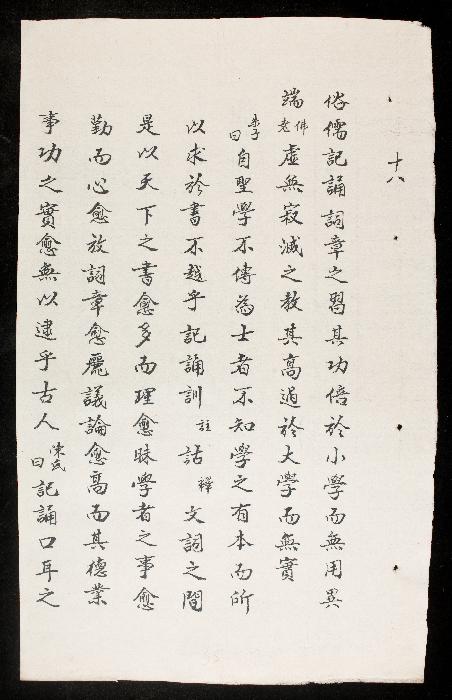 十八
俗儒記誦詞章之習其功倍於小學而無用異
端佛老虛無寂滅之教其高過於大學而無實
朱子曰自聖學不傳為士者不知學之有本而所
以求於書不越乎記誦訓註詁釋文詞之間
是以天下之書愈多而理愈昧學者之事愈
勤而心愈放詞章愈麗議論愈高而其德業
事功之實愈無以逮乎古人陳氏曰記誦口耳之